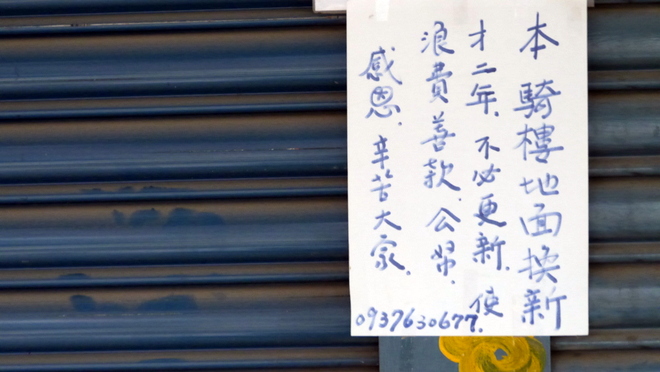 本騎樓地面換新
才二年.不必更新.使
浪費善款.公帑.
感恩.辛苦大家.
0937630677.